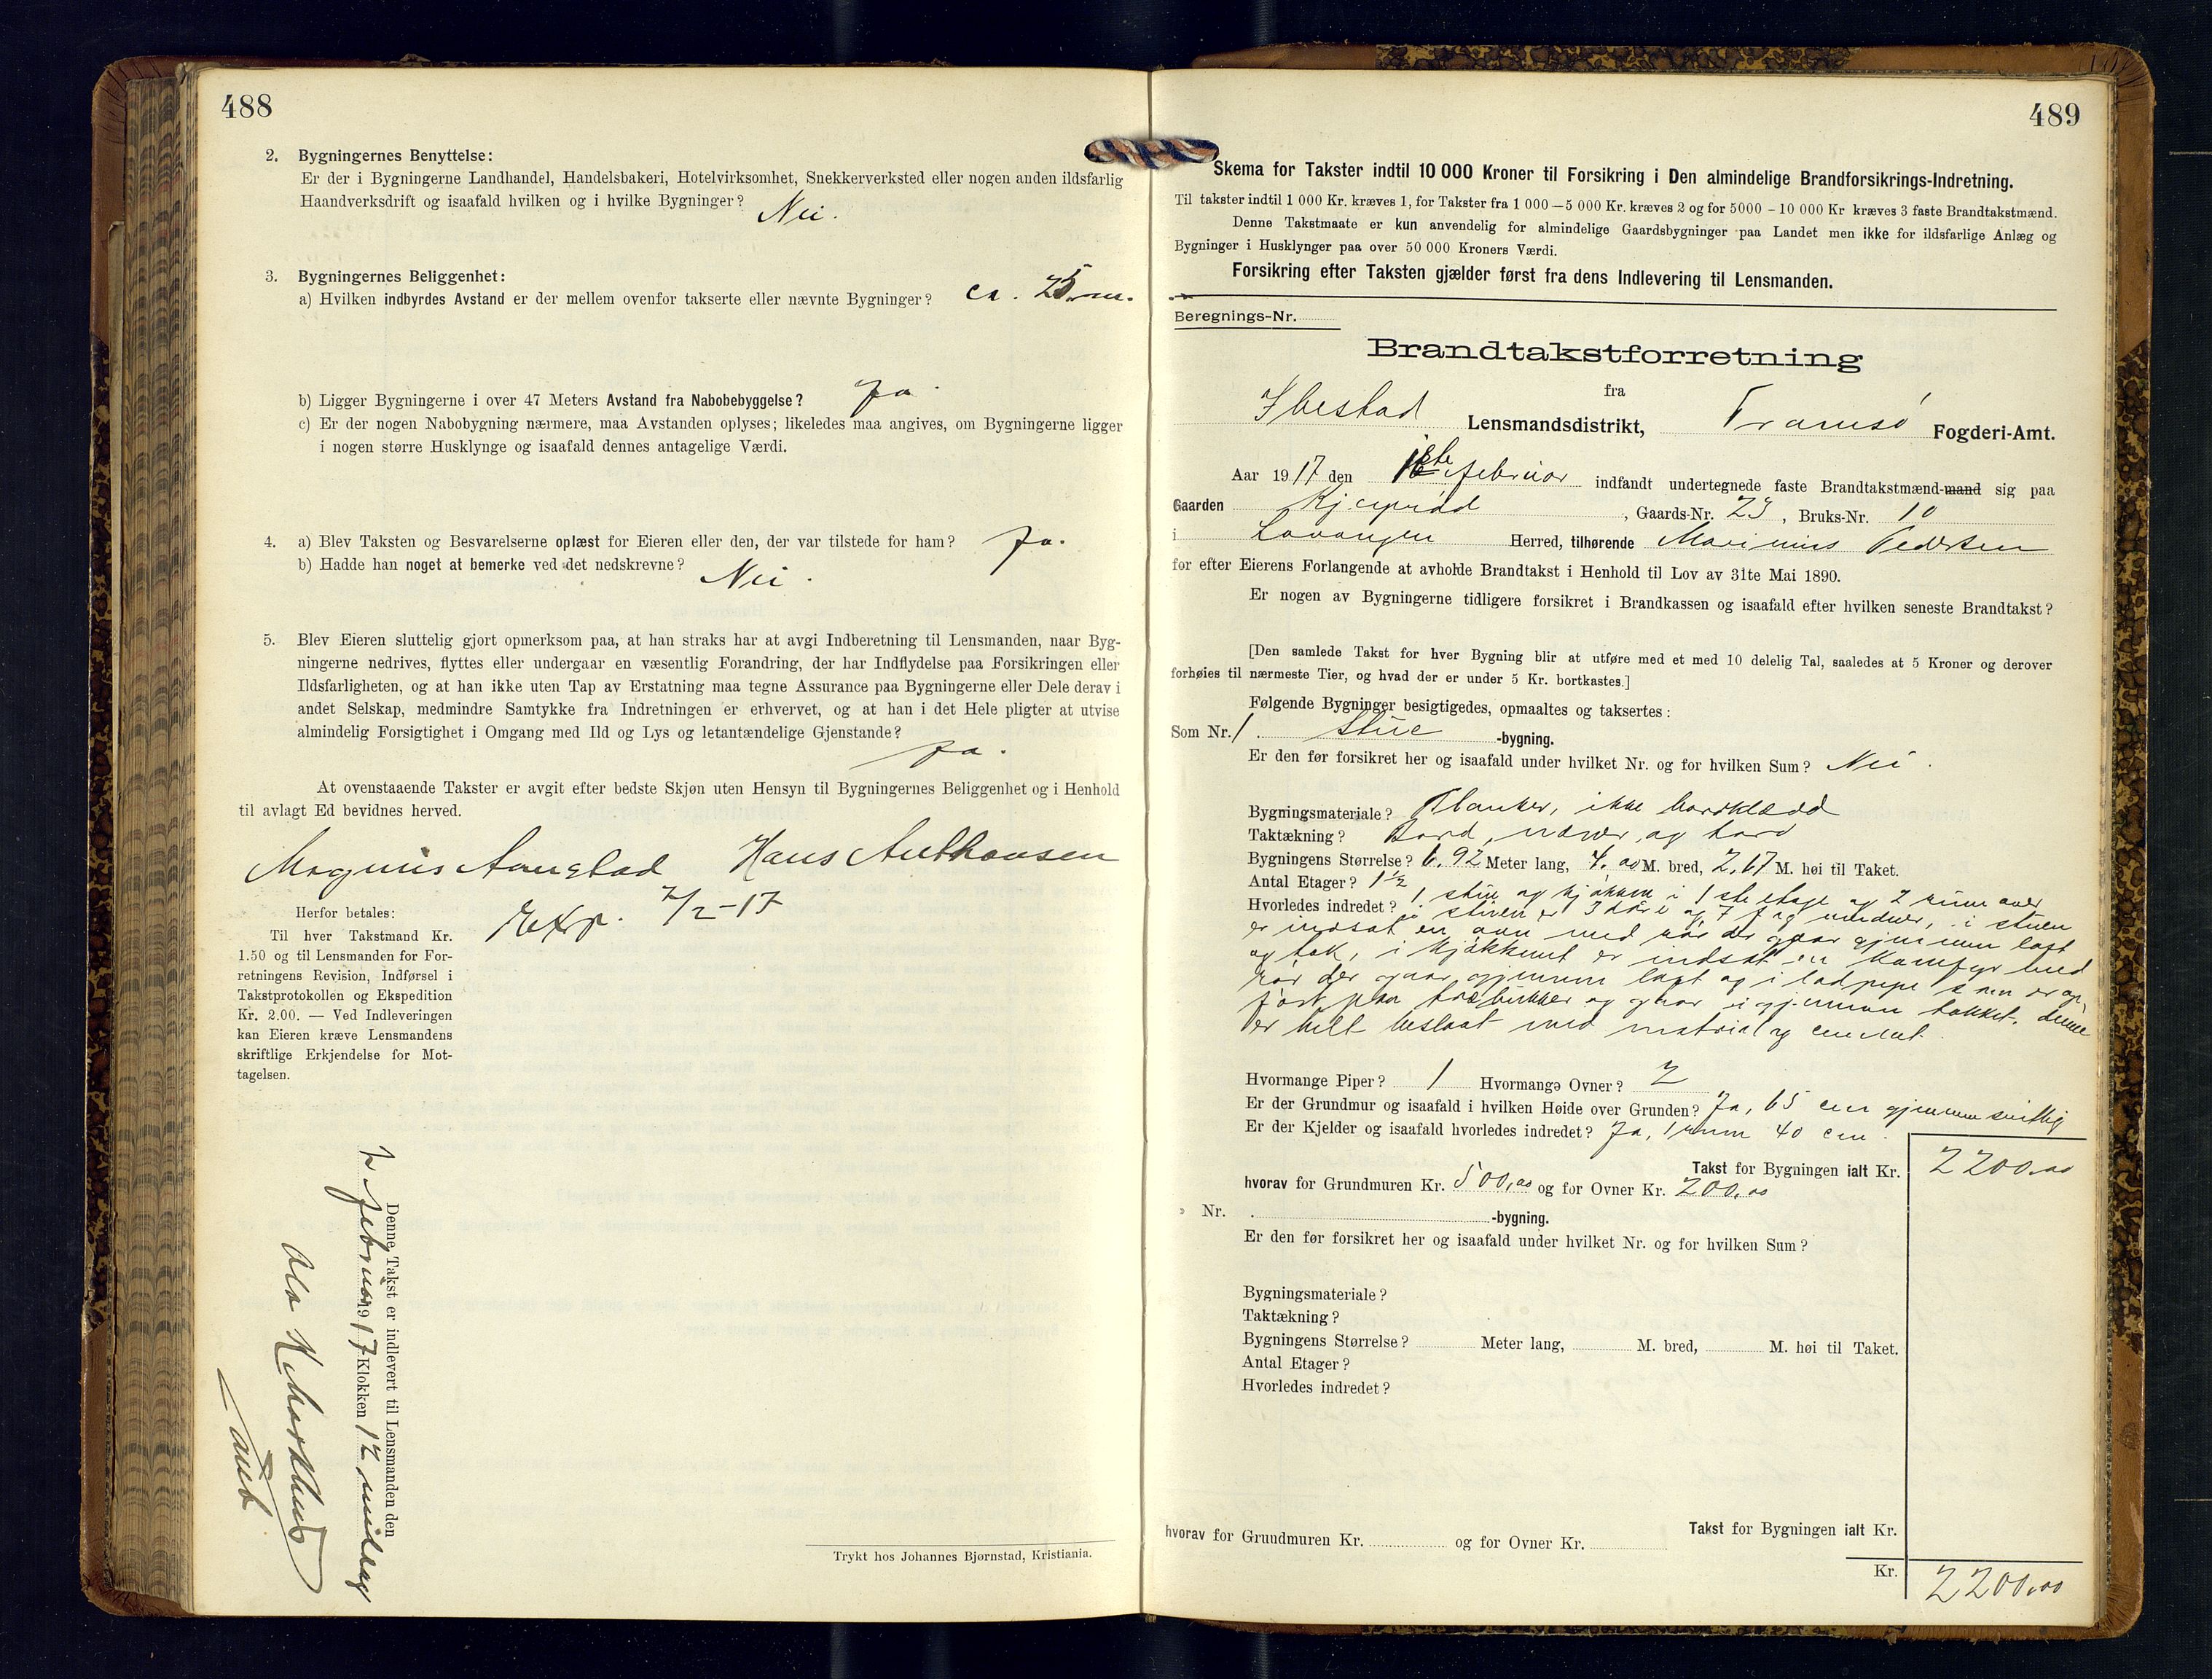 488
2. Bygningernes Benyttelse:
Er der i Bygningerne Landhandel, Handelsbakeri, Hotelvirksomhet, Snekkerverksted eller nogen anden ildsfarlig
Haandverksdrift og isaafald hvilken og i hvilke Bygninger? Nei.
3. Bygningernes Beliggenhet:
a) Hvilken indbyrdes Avstand er der mellem ovenfor takserte eller nævnte Bygninger? ca. 25 m.
b) Ligger Bygningerne i over 47 Meters Avstand fra Nabobebyggelse? Ja
c) Er der nogen Nabobygning nærmere, maa Avstanden oplyses; likeledes maa angives, om Bygningerne ligger
i nogen større Husklynge og isaafald dennes antagelige Værdi.
4. a) Blev Taksten og Besvarelserne oplæst for Eieren eller den, der var tilstede for ham? Ja.
b) Hadde han noget at bemerke ved det nedskrevne? Nei.
5. Blev Eieren sluttelig gjort opmerksom paa, at han straks har at avgi Indberetning til Lensmanden, naar Byg-
ningerne nedrives, flyttes eller undergaar en væsentlig Forandring, der har Indflydelse paa Forsikringen eller
Ildsfarligheten, og at han ikke uten Tap av Erstatning maa tegne Assurance paa Bygningerne eller Dele derav i
andet Selskap, medmindre Samtykke fra Indretningen er erhvervet, og at han i det Hele pligter at utvise
almindelig Forsigtighet i Omgang med Ild og Lys og letantændelige Gjenstande?
Ja.
At ovenstaaende Takster er avgit efter bedste Skjøn uten Hensyn til Bygningernes Beliggenhet og i Henhold
til avlagt Ed bevidnes herved.
Magnus Aanstad Hans Anthonsen
Exp. 7/2-17
Herfor betales:
Til hver Takstmand Kr.
1.50 og til Lensmanden for For-
retningens Revision, Indførsel i
Takstprotokollen og Ekspedition
Kr. 2.00. — Ved Indleveringen
kan Eieren kræve Lensmandens
skriftlige Erkjendelse for Mot-
tagelsen.
Denne Takst er indlevert til Lensmanden den
2 februar 1917 Klokken 12 middag
Ola
Trykt hos Johannes Bjørnstad, Kristiania.
489
Skema for Takster indtil 10 000 Kroner til Forsikring i Den almindelige Brandforsikrings-Indretning.
Til takster indtil 1 000 Kr. kræves 1, for Takster fra 1 000—5 000 Kr. kræves 2 og for 5000 - 10 000 Kr kræves 3 faste Brandtakstmænd.
Denne Takstmaate er kun anvendelig for almindelige Gaardsbygninger paa Landet men ikke for ildsfarlige Anlæg og
Bygninger i Husklynger paa over 50 000 Kroners Værdi.
Forsikring efter Taksten gjælder først fra dens Indlevering til Lensmanden.
Beregnings-Nr.
Brandtakstforretning
fra
Ibestad Lensmandsdistrikt, Tromsø Fogderi-Amt.
Aar 1917 den februar indfandt undertegnede faste Brandtakstmænd-mand sig paa
Gaarden , Gaards-Nr. 23, Bruks-Nr. 10
i Lavangen Herred, tilhørende Marinius Pedersen
for efter Eierens Forlangende at avholde Brandtakst i Henhold til Lov av 31te Mai 1890.
Er nogen av Bygningerne tidligere forsikret i Brandkassen og isaafald efter hvilken seneste Brandtakst?
[Den samlede Takst for hver Bygning blir at utføre med et med 10 delelig Tal, saaledes at 5 Kroner og derover
forhøies til nærmeste Tier, og hvad der er under 5 Kr. bortkastes.]
Følgende Bygninger besigtigedes, opmaaltes og taksertes:
Som Nr. 1. Stue -bygning.
Er den før forsikret her og isaafald under hvilket Nr. og for hvilken Sum? Nei.
Bygningsmateriale? Planker, ikke bordklædd
Taktækning? Bord, næver, og torv
Bygningens Størrelse? 6.92 Meter lang, 4.00 M. bred, 2.67 M. høi til Taket.
Antal Etager? 1½
Hvorledes indredet? 1 stue og kjøkken i 1ste etage og 2 rum over
i stuen er 3 døre og 7 fag vinduer, i stuen
er indsat en ovn med rør der gaar gjennem loft
og tak, i kjøkkenet er indsat en komfyr med
rør der gaar gjennem loft og i ladpipe som er op-
ført paa træbukker og gaar gjennem takket. denne
er helt beslaat med material og cement.
Hvormange Piper? 1 Hvormange Ovner? 2
Er der Grundmur og isaafald i hvilken Høide over Grunden? Ja, 65 cm gjennemsnitlig
Er der Kjelder og isaafald hvorledes indredet? Ja, 1 rum 40 cm.
Takst for Bygningen ialt Kr. 2200,00
hvorav for Grundmuren Kr. 500,00 og for Ovner Kr. 200,00
» Nr. . -bygning.
Er den før forsikret her og isaafald under hvilket Nr. og for hvilken Sum?
Bygningsmateriale?
Taktækning?
Bygningens Størrelse? Meter lang, M. bred, M. høi til Taket.
Antal Etager?
Hvorledes indredet?
Takst for Bygningen ialt Kr.
hvorav for Grundmuren Kr. og for Ovner Kr.
Kr. 2200,00